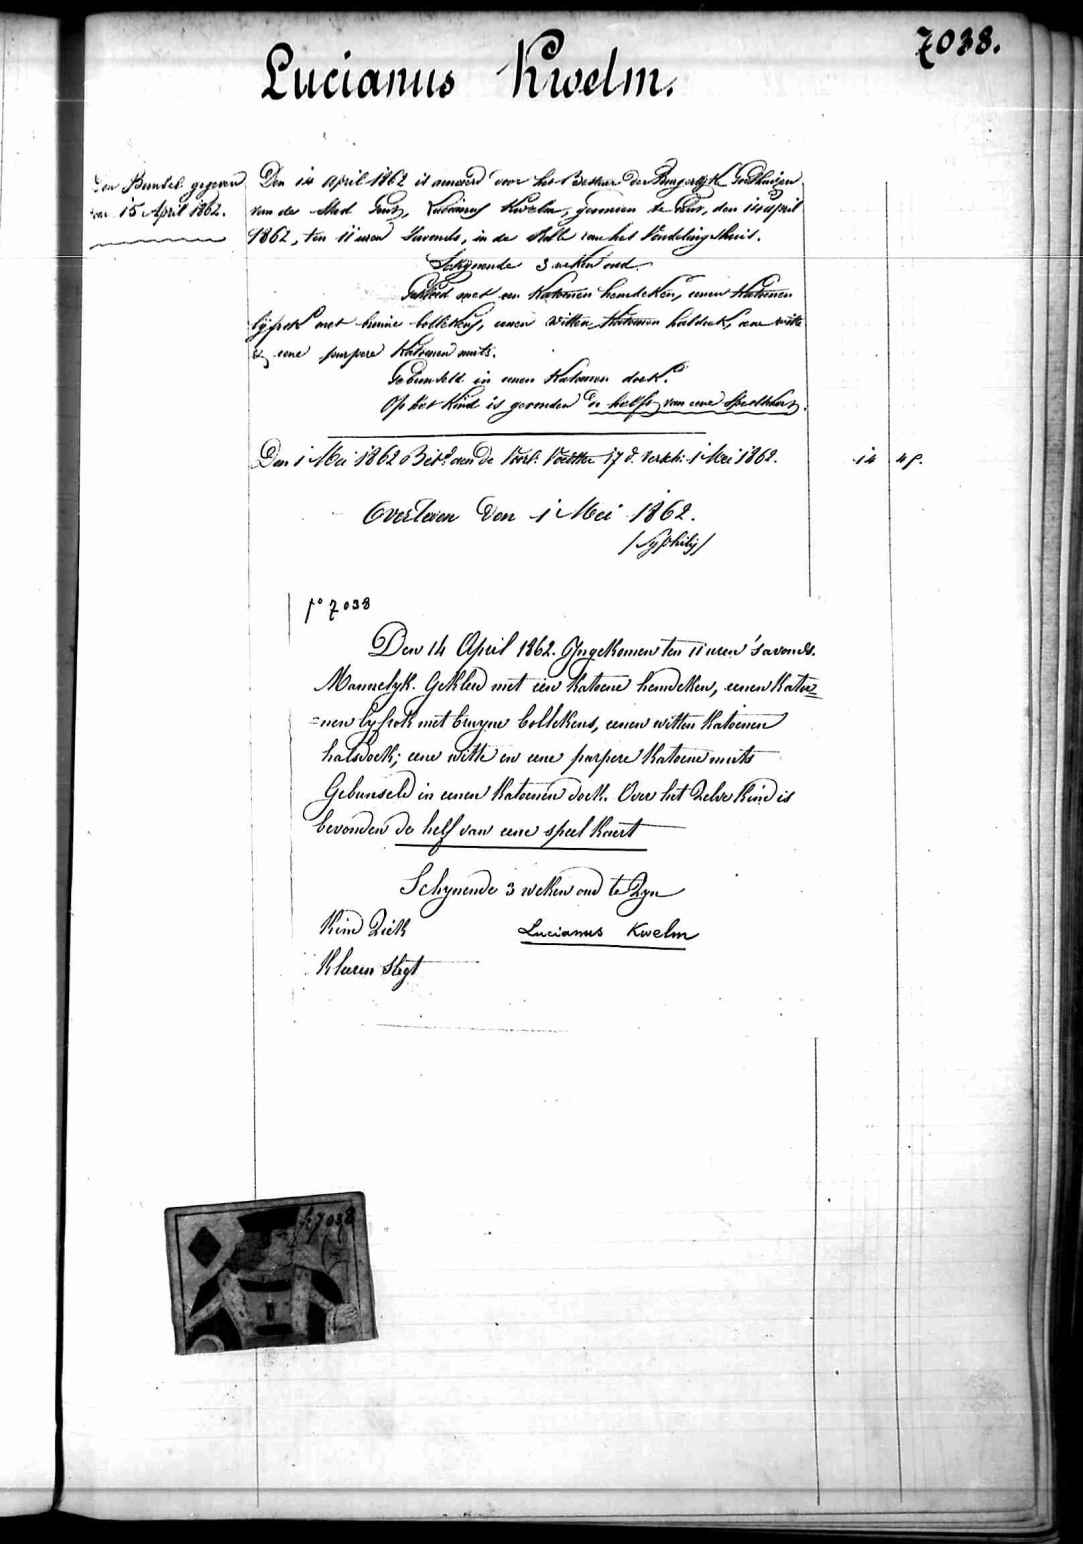 7038.
Lucianus Kwelm.
Den Bundel gegeven
15 April 1862.
Den 14 April 1862 is aanveerd voor het Bestuur der Burgerlijke Godshuizen
van de Stad Gent, Lucianus Kwelm, gevonden te Gent, den 14 April
1862, ten 11 uren s'avonds, in de van het Vondelingshuis.
Schijnende 3 weken oud.
Gekleed met een Katoenen hemdeken, eenen Katoenen
lijfrok met bruine bollekens, eenen witten Katoenen halsdoek, eene witte
en eene purpere Katoenen muts.
Gebunseld in eenen Katoenen doek.
Op het Kind is gevonden de helft van eene speelkaart.
Den 1 Mei 1862 aan de 17 d. 1 Mei 1862. 14 45.
Overleden den 1 Mei 1862.
/Syphilis/
fo 7038
Den 14 April 1862. Ingekomen ten 11 uren 's avonds.
Mannelyk. Gekleed met een Katoene hemdeken, eenen Katoe=
=nen lyfrok met bruyne bollekens, eenen witten Katoenen
halsdoek; eene witte en eene purpere Katoene muts
Gebunseld in eenen Katoenen doek. Over het zelve Kind is
bevonden de helf van eene speel Kaert
Schynende 3 weken oud te Zyn
Kind Ziek Lucianus Kwelm
Kleeren Slegt
7038